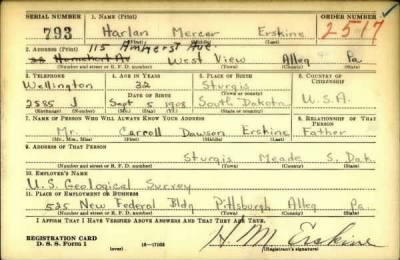 SERIAL NUMBER 1. NAME (Print) ORDER NUMBER
793 Harlan Mercer Erskine 2517
(First) (Middle) (Last)
2. ADDRESS (Print) 115 Amherst Ave.
38 West View Alleg Pa
(Number and street or R. F. D. number) (Town) (County) (State)
3. TELEPHONE 4. AGE IN YEARS 5. PLACE OF BIRTH 6. COUNTRY OF CITIZENSHIP
Wellington 32 Sturgis
DATE OF BIRTH (Town or county)
2585 J Sept 5 1908 South Dakota U.S.A.
(Exchange) (Number) (Mo.) (Day) (Yr.) (State or country)
7. NAME OF PERSON WHO WILL ALWAYS KNOW YOUR ADDRESS 8. RELATIONSHIP OF THAT PERSON
Mr. Carroll Dawson Erskine Father
(Mr., Mrs., Miss) (First) (Middle) (Last)
9. ADDRESS OF THAT PERSON
Sturgis Meade S. Dak.
(Number and street or R. F. D. number) (Town) (County) (State)
10. EMPLOYER'S NAME
U.S. Geological Survey
11. PLACE OF EMPLOYMENT OR BUSINESS
525 New Federal Bldg Pittsburgh Alleg Pa.
(Number and street or R. F. D. number) (Town) (County) (State)
I AFFIRM THAT I HAVE VERIFIED ABOVE ANSWERS AND THAT THEY ARE TRUE.
REGISTRATION CARD
D. S. S. Form 1 (over) 16—17105 H M Erskine
(Registrant's signature)